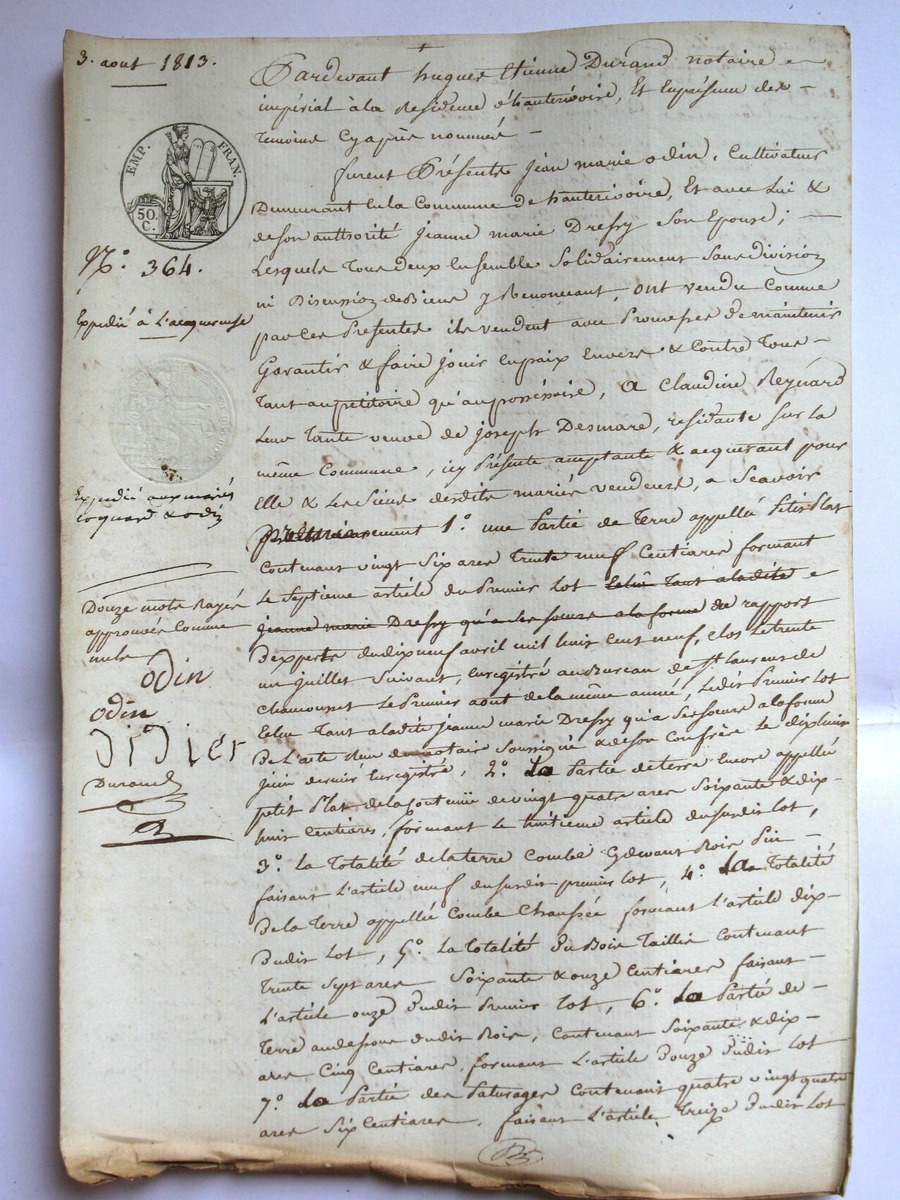 3. aout 1813.
EMP. FRAN.
50. C.
N.° 364.
Expedié à L'acquereuse
Expedié aux mariés
coquard & odin
Douze mots rayés
approuvés Comme
nuls
odin
odin
Didier
Durand
Pardevant hugues Etienne Durand notaire
impérial à la Residence d'hauterivoire, Et En présence des
Temoins Cy après nommés
furent Présents Jean marie odin, Cultivateur
Demeurant En la Commune De hauterivoire, Et avec Lui &
de son authorité Jeanne marie Dressy Son Epouse;
Lesquels Tous deux Ensemble Solidairement Sans division
ni Discussion de Biens y Renoncant, ont vendu Comme
par ces Presentes ils vendent avec Promesses De maintenir
Garantir & faire jouir en paix Envers & Contre Tous
Tant au petitoire qu'au possessoire, a Claudine Reynard
Leur Tante veuve de Joseph Desmare, residante sur La
même Commune, icy Présente acceptante & acquerant pour
Elle & Les Siens desdits mariés vendeurs, a Scavoir
premierement 1.° une Partie de Terre appellée Petit Plat
contenant vingt Six ares Trente neuf Centiares formant
Le Septieme article du Premier Lot Echu Tant a ladite
Jeanne marie Dressy qu'a Ses soeurs a la forme du rapport
D'experts du dix neuf avril mil huit Cent neuf, Clos Le trente
un juillet Suivant, Enregistré au Bureau de St Laurent de
Chamousset Le Premier aout de la même année, Ledit Premier Lot
Echu Tant a ladite Jeanne marie Dressy qu'a Ses soeurs a la forme
De L'acte Reçu du notaire Soussigné & de son Confrère Le dix huit
juin dernier Enregistré, 2.° La Partie de terre Encore appellée
petit Plat de la Contenue de vingt quatre ares Soixante & dix
huit Centiares, formant Le huitieme article du susdit Lot,
3.° La Totalité de la terre Combe Cy devant Bois Pin
faisant L'article neuf du susdit premier Lot, 4.° La Totalité
De La Terre appellée Combe Chaussée formant L'article dix
Dudit Lot, 5.° La Totalité Du Bois Taillis Contenant
Trente Sept ares Soixante & onze Centiares faisant
L'article onze Dudit Premier Lot, 6.° La Partie de
Terre au dessous dudit Bois, Contenant Soixante & dix
ares Cinq Centiares, formant L'article Douze Dudit Lot
7.° La Partie des Paturages Contenant quatre vingt quatre
ares Six Centiares, faisant L'article Treize Dudit Lot